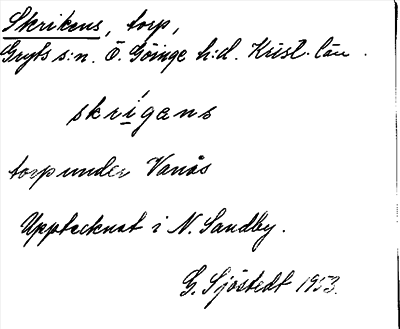 Skrikens, torp,
Gryts s:n. Ö. Göinge h:d. Krist. län.
skrígæns
torp under Vanås
Upptecknat i N. Sandby.
G. Sjöstedt 1953.